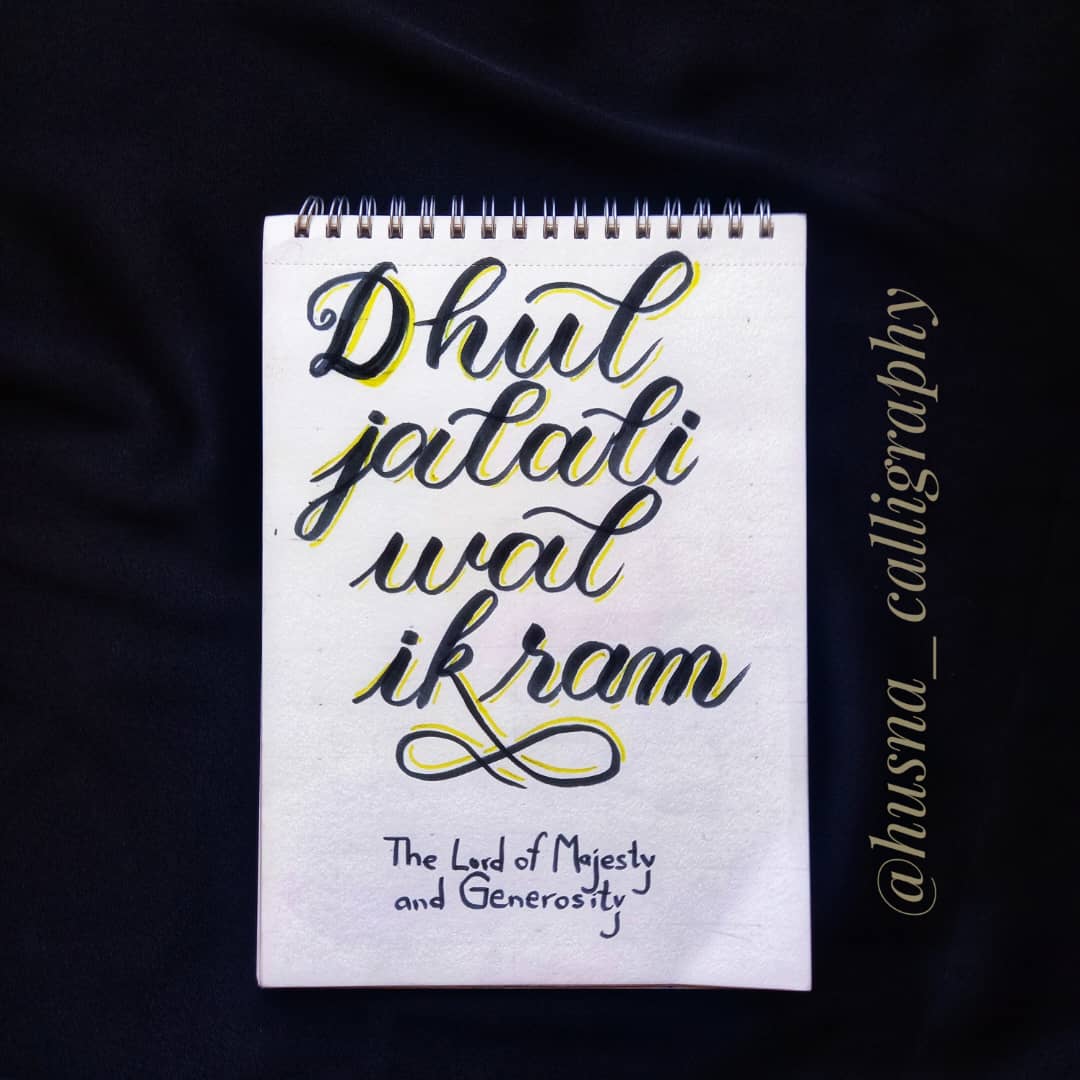 Dhul
jalali
wal
ikram
The Lord of Majesty
and Generosity
@husna_calligraphy